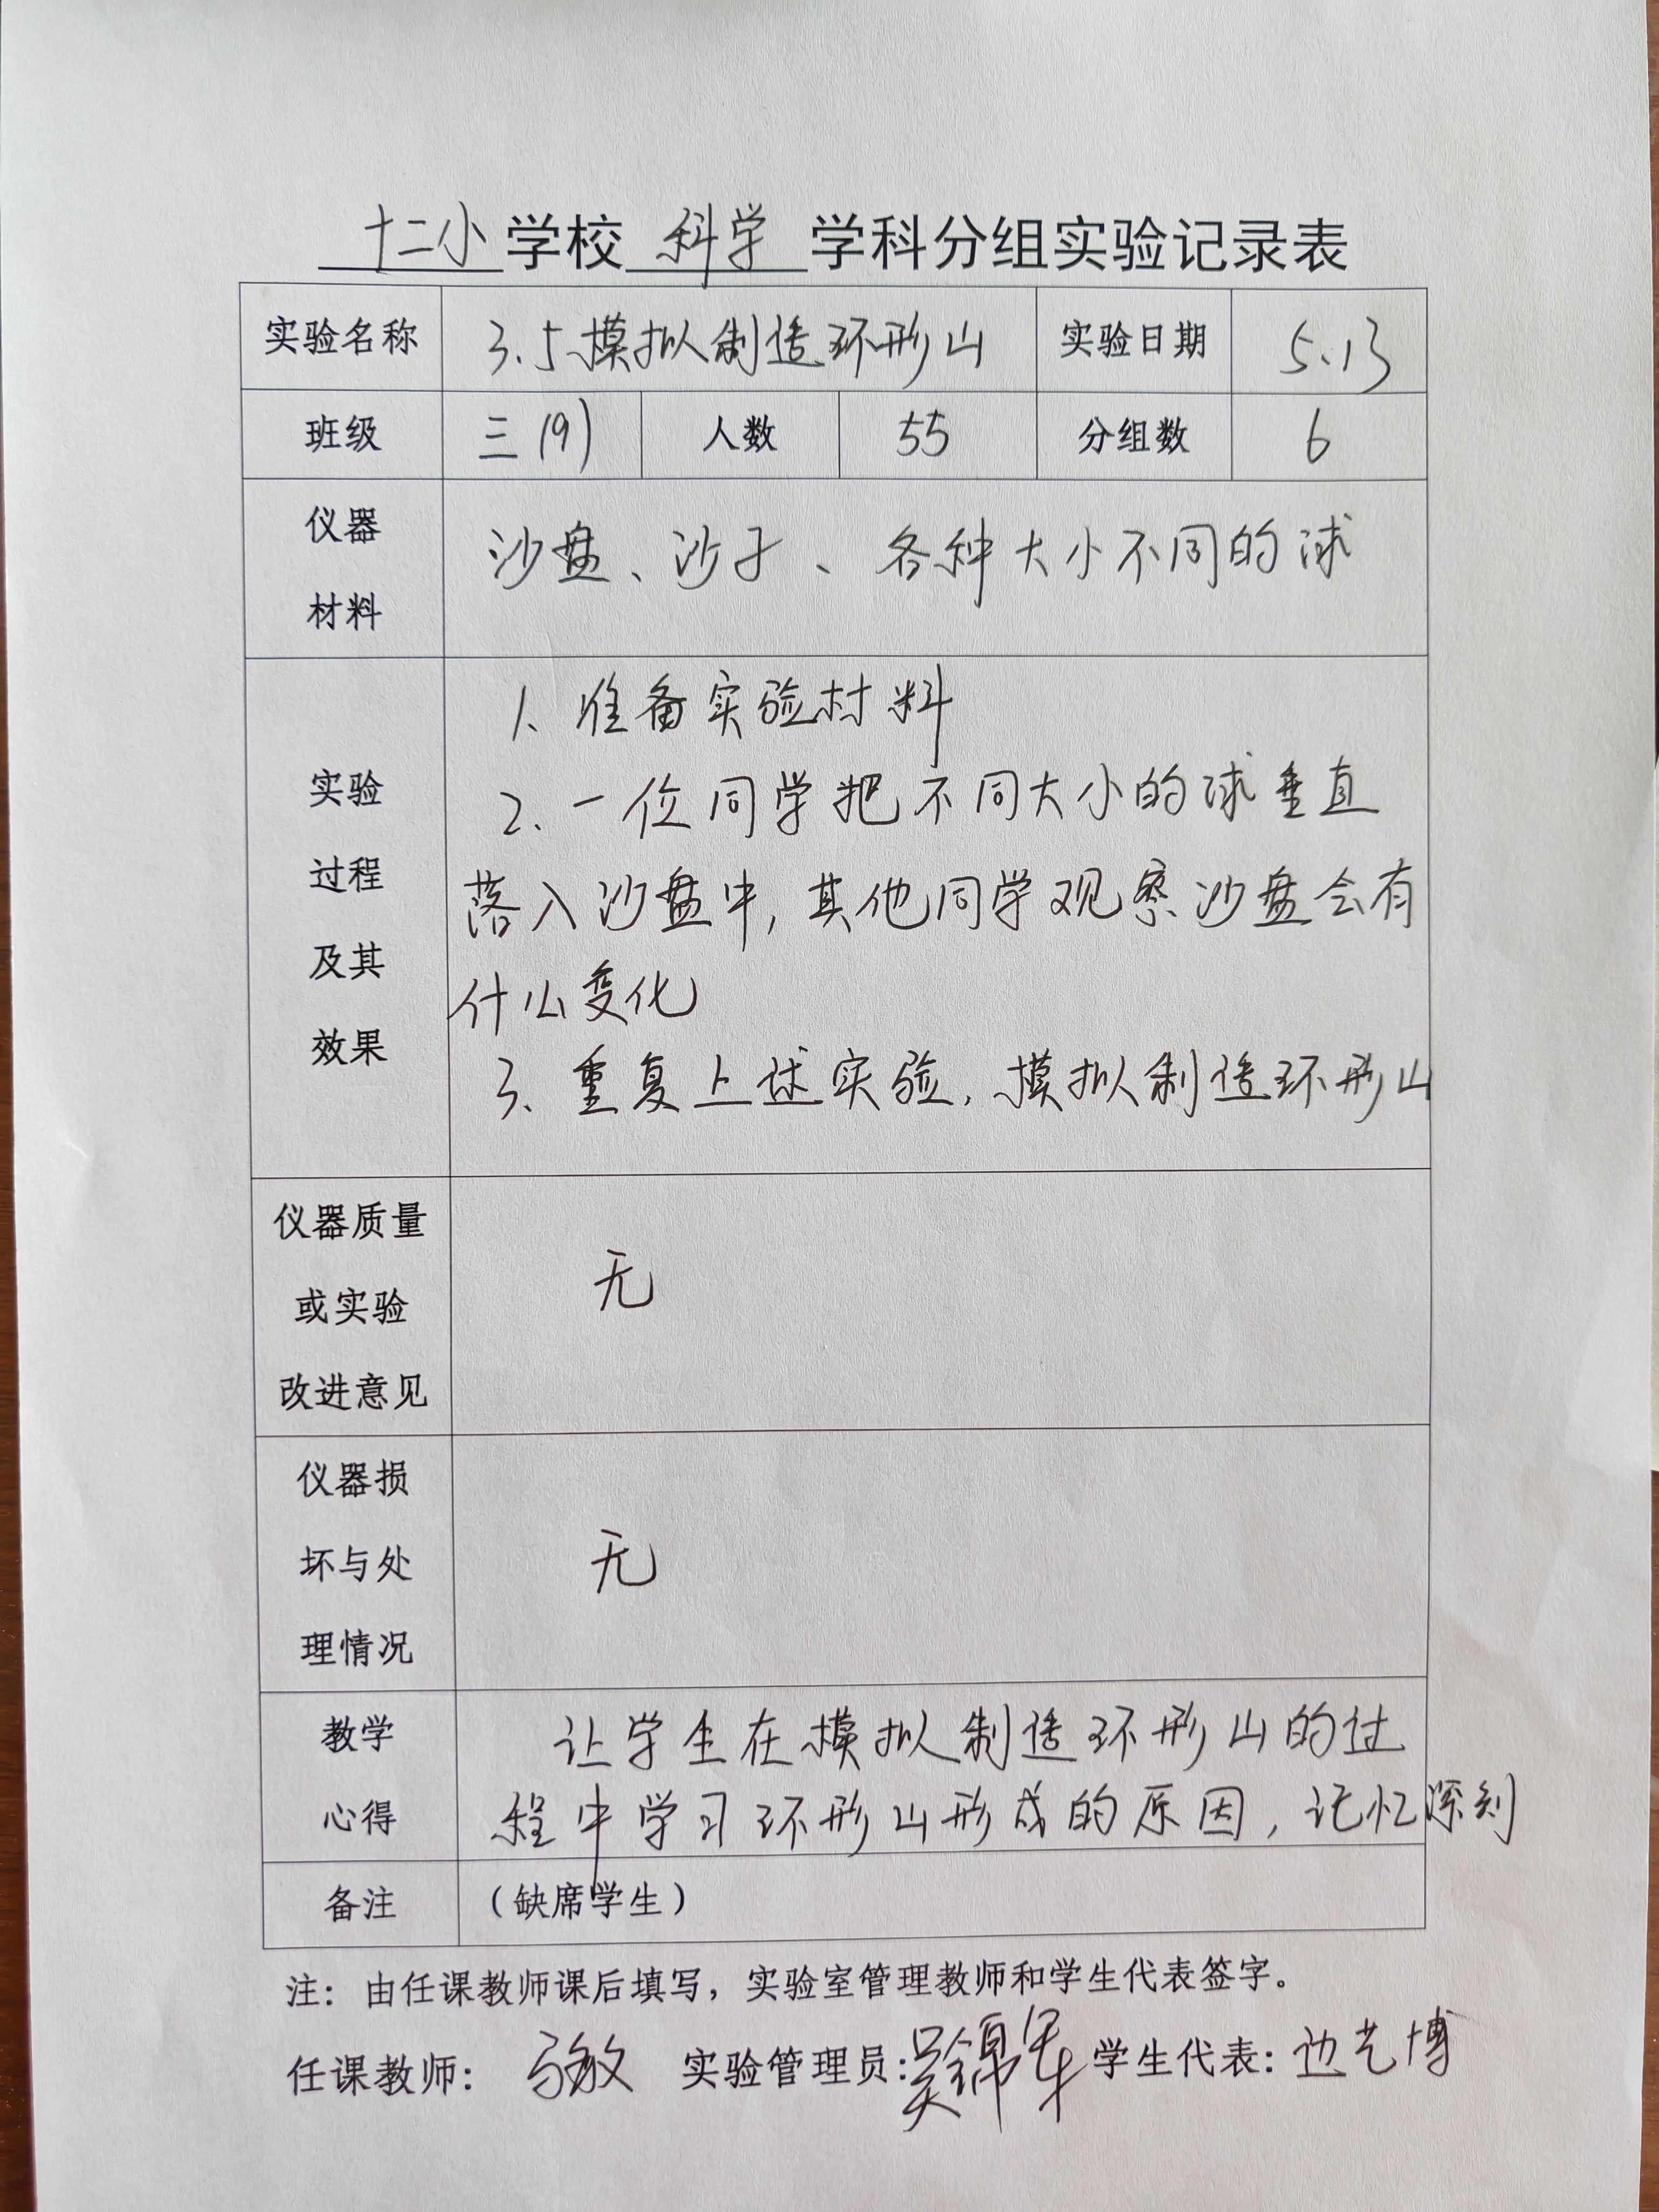 十二小 学校 科学 学科分组实验记录表
实验名称 3.5模拟制造环形山 实验日期 5.13
班级 三(9) 人数 55 分组数 6
仪器
材料
沙盘、沙子、各种大小不同的球
实验
过程
及其
效果
1、准备实验材料
2、一位同学把不同大小的球垂直
落入沙盘中,其他同学观察沙盘会有
什么变化
3、重复上述实验,模拟制造环形山
仪器质量
或实验
改进意见
无
仪器损
坏与处
理情况
无
教学
心得
让学生在模拟制造环形山的过
程中学习环形山形成的原因,记忆深刻
备注 (缺席学生)
注:由任课教师课后填写,实验室管理教师和学生代表签字。
任课教师: 马敏 实验管理员: 吴锦 学生代表: 边艺博